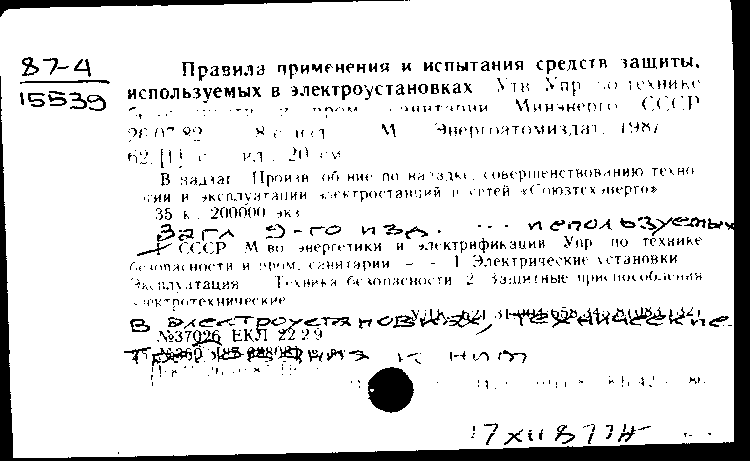 87-4
15539
Правила применения и испытания средств защиты,
используемых в электроустановках Утв Упр по технике
пром санитарии Минэнерго СССР
8-е изд М Энергоатомиздат, 1987
62, [1] с ил 20 см
В надзаг Произв об-ние по наладке, совершенствованию техно
гии и эксплуатации электростанций и сетей «Союзтехэнерго»
35 к, 200000 экз
Загл 9-го изд. ... используемых
СССР М-во энергетики и электрификации Упр по технике
безопасности и пром. санитарии - - 1 Электрические установки
Эксплуатация Техника безопасности 2 Защитные приспособления
электротехнические
УДК 621 31
в электроустановках, технические
№37026 ЕКЛ 22 2 9
требования к ним
17 XII 87